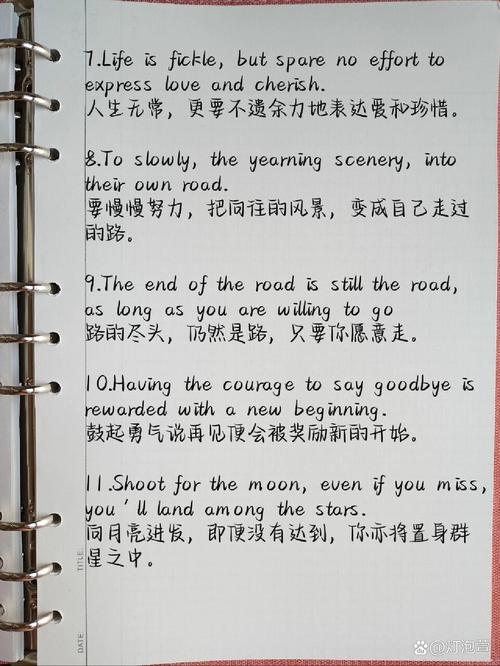 7.Life is fickle, but spare no effort to
express love and cherish.
人生无常，更要不遗余力地表达爱和珍惜。
8.To slowly, the yearning scenery, into
their own road.
要慢慢努力，把向往的风景，变成自己走过
的路。
9.The end of the road is still the road,
as long as you are willing to go
路的尽头，仍然是路，只要你愿意走。
10.Having the courage to say goodbye is
rewarded with a new beginning.
鼓起勇气说再见便会被奖励新的开始。
11.Shoot for the moon, even if you miss,
you'll land among the stars.
向月亮进发，即便没有达到，你亦将置身群
星之中。
TITLE:
DATE:
百家号/灯泡营